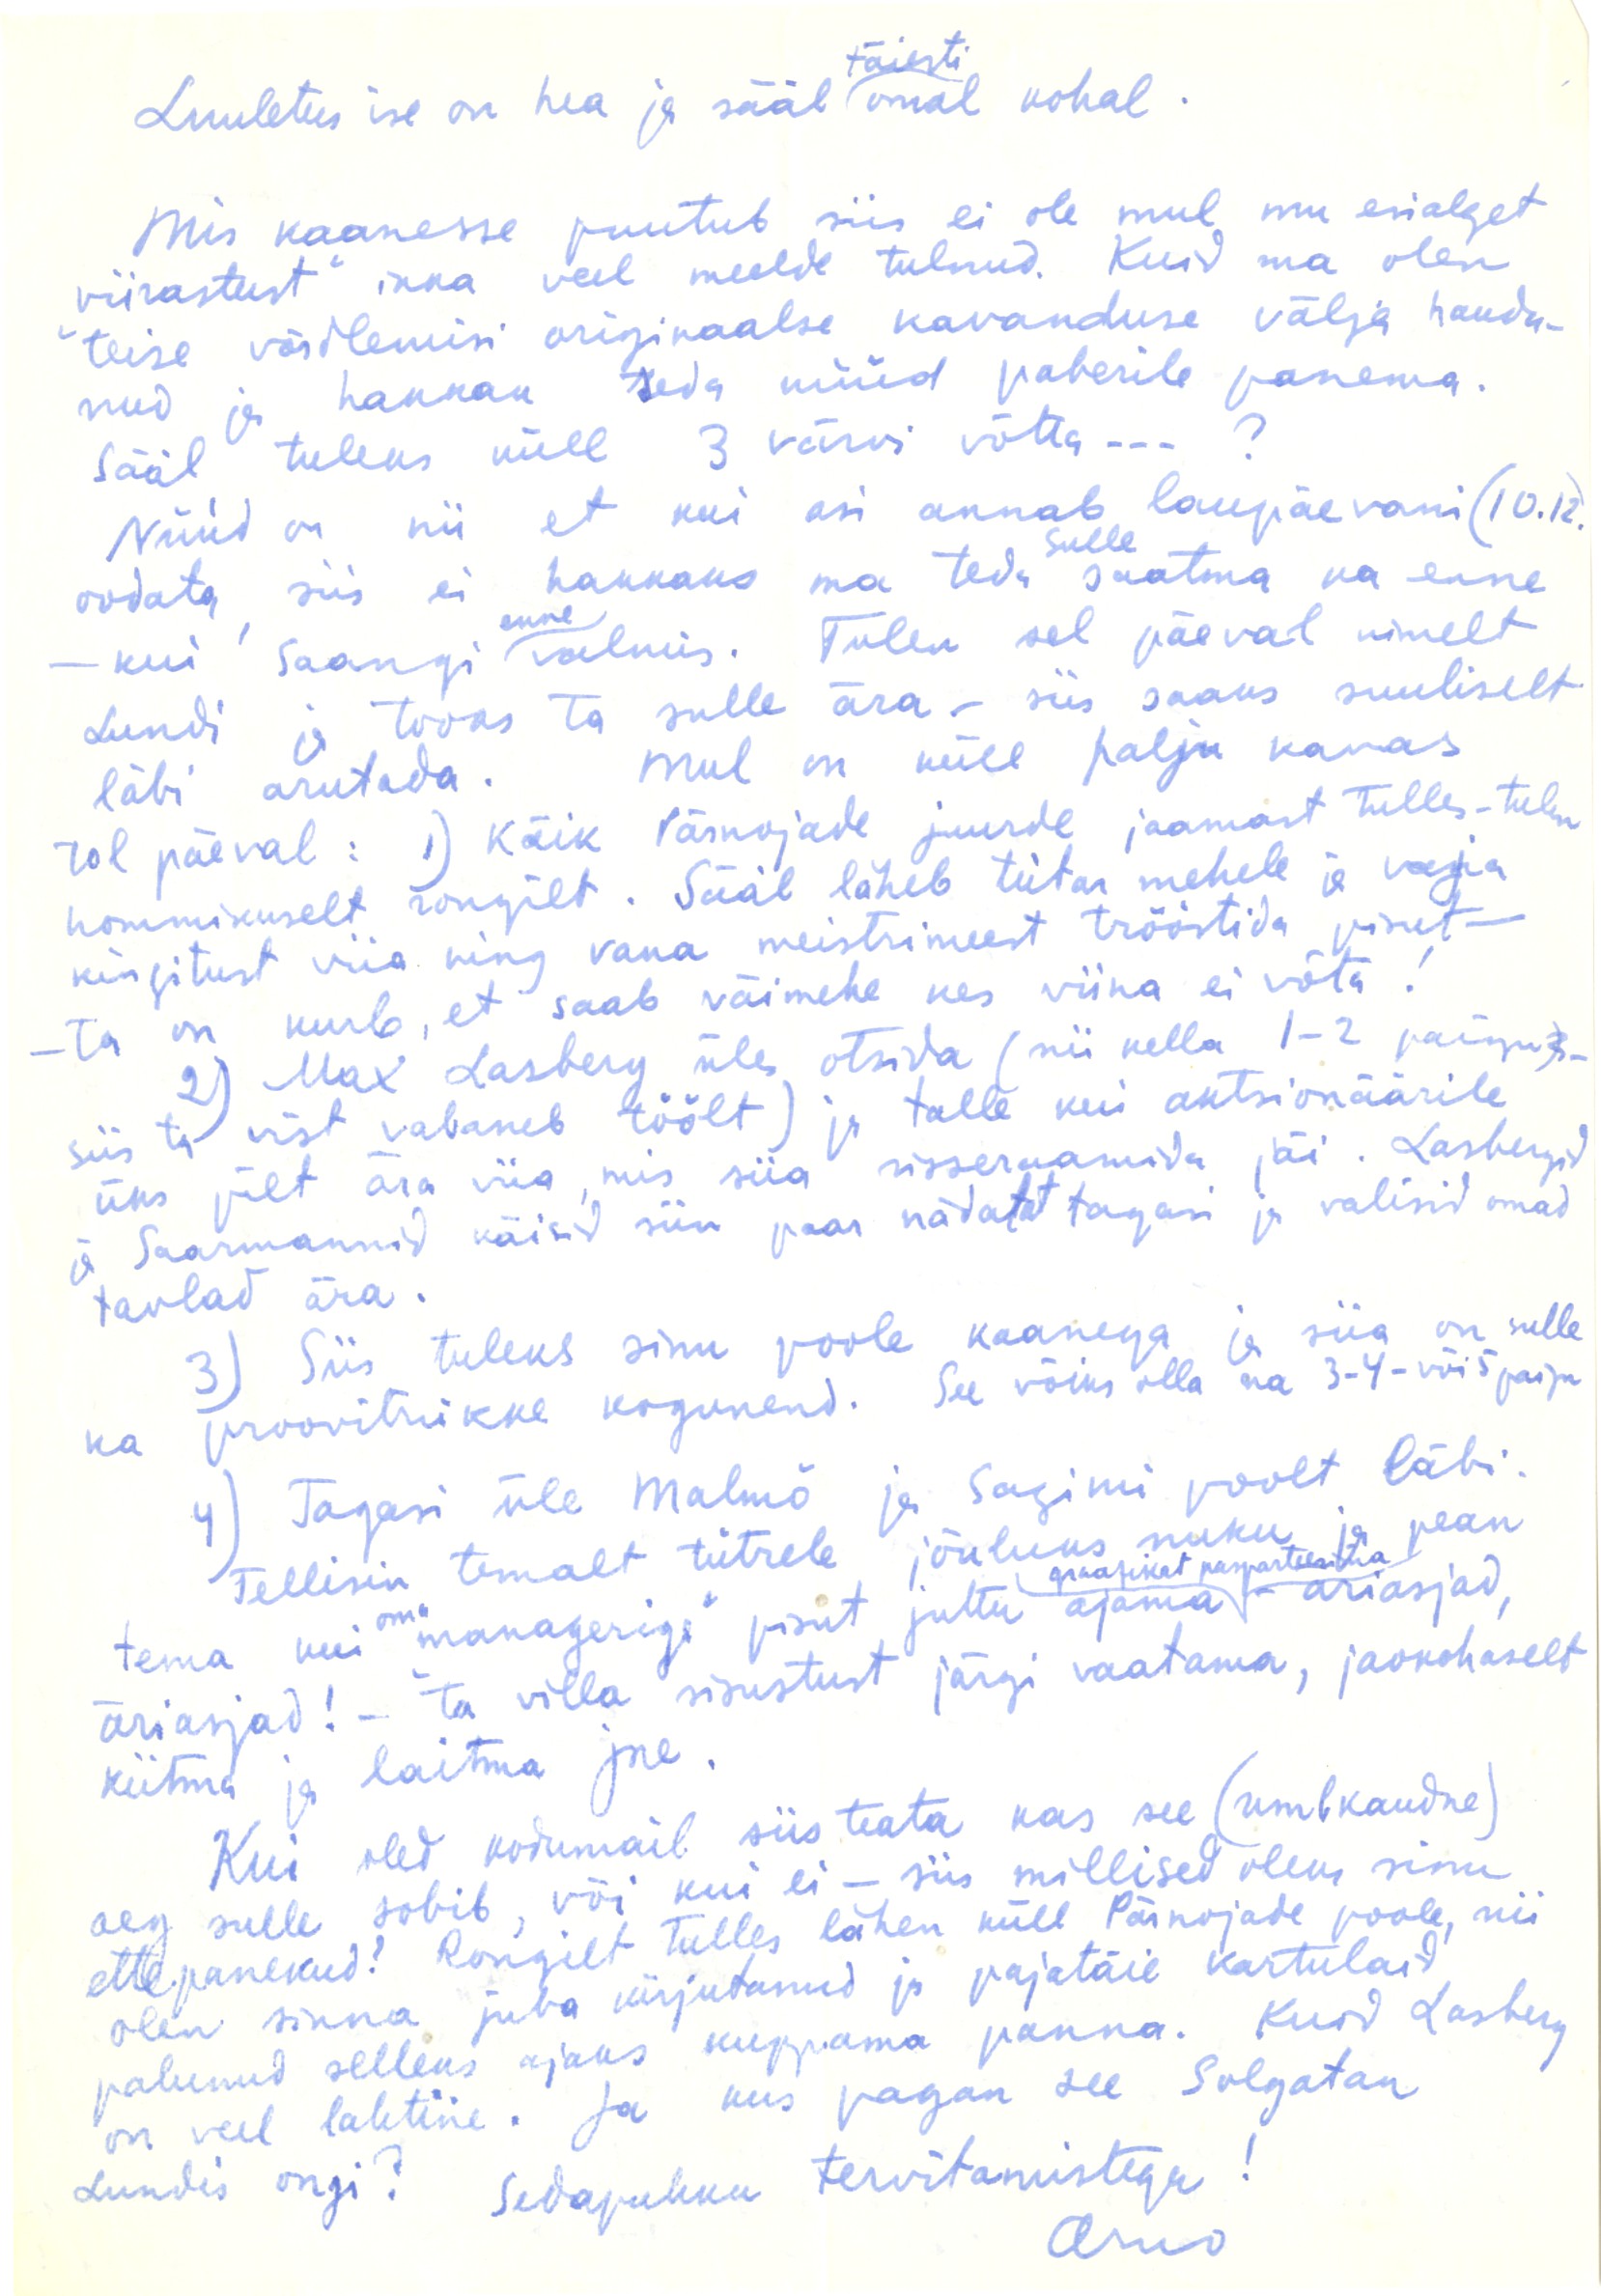 Luuletus ise on hea ja sääl täiesti omal kohal.
Mis kaanesse puutub siis ei ole mul mu esialget
"viirastust" ikka veel meelde tulnud. Kuid ma olen
teise võrdlemisi originaalse kavanduse välja haudu-
nud ja hakkan seda nüüd paberile panema.
Sääl tuleks küll 3 värvi võtta --- ?
Nüüd on nii et kui asi annab laupäevani (10.12.
oodata, siis ei hakkaks ma teda Sulle saatma ka enne
– kui saangi enne valmis. Tulen sel päeval nimelt
Lundi ja tooks ta sulle ära – siis saaks suuliselt
läbi arutada. Mul on küll palju kavas
tol päeval: 1) Käik Pärnojade juurde jaamast tulles – tulen
hommikuselt rongilt. Sääl läheb tütar mehele ja vaja
kingitust viia ning vana meistrimeest trööstida pisut –
– ta on kurb, et saab väimehe kes viina ei võta!
2) Max Lasberg üles otsida (nii kella 1–2 paigu –
siis ta vist vabaneb töölt) ja talle kui aktsionäärile
üks pilt ära viia, mis siia sisseraamida jäi. Lasbergid
ja Saarmannid käisid siin paar nädalat tagasi ja valisid omad
tavlad ära.
3) Siis tuleks sinu poole kaanega ja siia on sulle
ka proovitrükke kogunend. See võiks olla na 3-4-või 5 paigu
4) Tagasi üle Malmö ja Sagimi poolt läbi.
Tellisin temalt tütrele jõuluks nuku ja pean
tema kui oma "managerige" pisut juttu ajama – graafikat paspartuusida – äriasjad,
äriasjad! – ta villa sisustust järgi vaatama, jaokohaselt
kiitma ja laitma jne.
Kui oled kodumail siis teata kas see (umbkaudne)
aeg sulle sobib, või kui ei – siis millised oleks sinu
ettepanekud? Rongilt tulles lähen küll Pärnojade poole, nii
olen sinna juba kirjutanud ja pajatäie kartulaid
palunud selleks ajaks kuppama panna. Kuid Lasberg
on veel lahtine. Ja kus pagan see Solgatan
Lundis ongi? Sedapuhku tervitamistega!
Arno